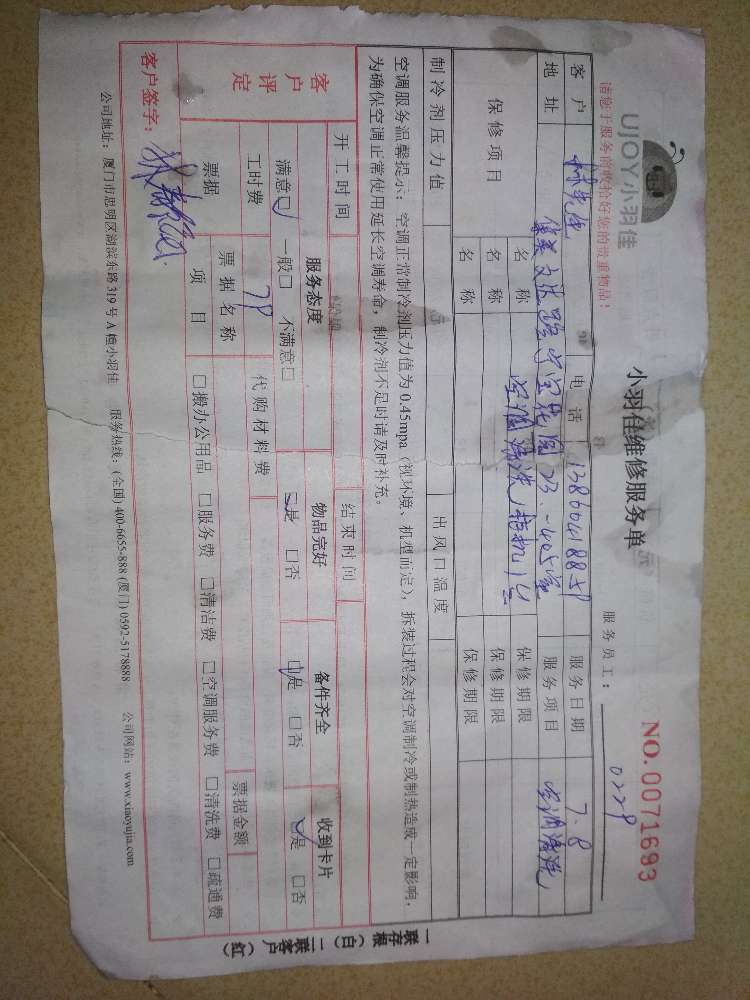 UJOY小羽佳
小羽佳维修服务单
NO. 0071693
请您于服务前收拾好您的贵重物品!
服务员工: 0229
客户 林先生 电话 13860418859 服务日期 7.8
地址 集美文达路学宝花园23-405室 服务项目 空调清洗
保修项目 名称 保修期限
名称 保修期限
名称 保修期限
制冷剂压力值 出风口温度
空调服务温馨提示:空调正常制冷剂压力值为0.45mpa(视环境、机型而定),拆装过程会对空调制冷或制热造成一定影响,
为确保空调正常使用延长空调寿命,制冷剂不足时请及时补充。
开工时间 结束时间
客户评定 服务态度 物品完好 备件齐全 收到卡片
满意☑ 一般□ 不满意□ ☑是 □否 ☑是 □否 ☑是 □否
工时费 79 代购材料费
票据 票据名称 票据金额
项目 □搬办公用品 □服务费 □清洁费 □空调服务费 □清洗费 □疏通费
客户签字:
公司地址:厦门市思明区湖滨东路319号A幢小羽佳 服务热线:(全国) 400-6655-888 (厦门) 0592-5178888 公司网站:www.xiaoyujia.com
一联存根(白) 二联客户(红)